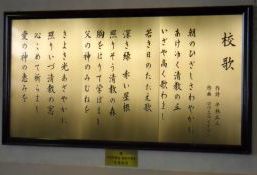 校歌
朝のひざしさわやかに
あけゆく清教の丘
いざや高く歌わまし
若き日のたたえ歌
深き緑 赤い屋根
照りそう清教の森
胸をはって学ばまし
父の神のみむねを
きよき光あざやかに
照りいづ清教の窓
心こめて祈らまし
愛の神の恵みを